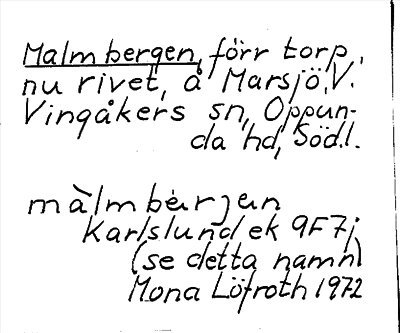 Malmbergen, förr torp,
nu rivet, å Marsjö, V.
Vingåkers sn, Oppun-
da hd, Södl.
màlmbärjan
Karlslund ek 9F7j
(se detta namn)
Mona Löfroth 1972